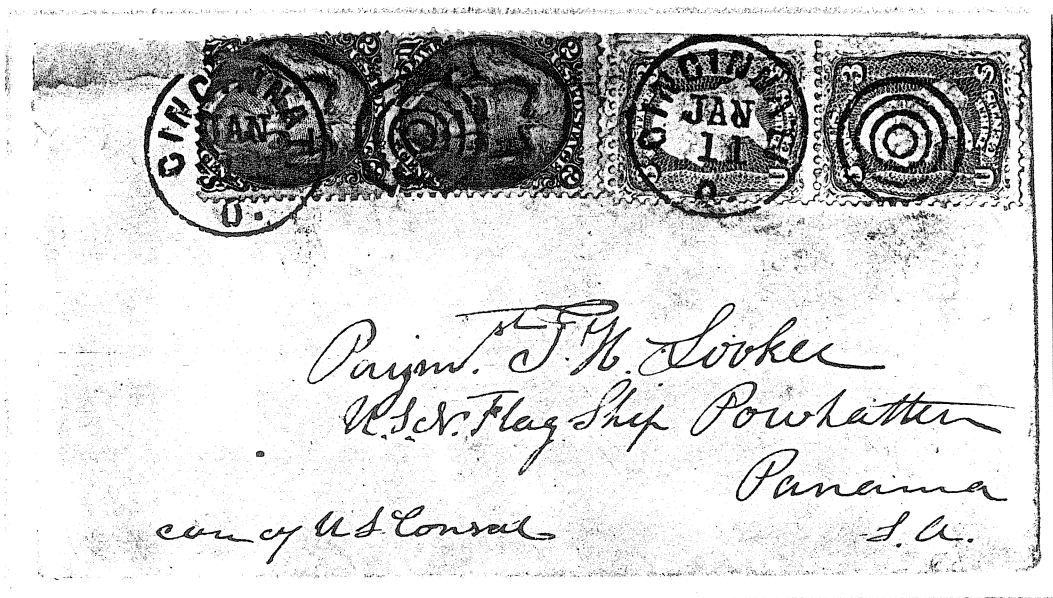 CINCINNATI
JAN
O.
CINCINNATI
JAN
11
O.
Paymst. T. H. Looker
U.S.N. Flag Ship Powhatten
Panama
S. A.
care of U S Consul